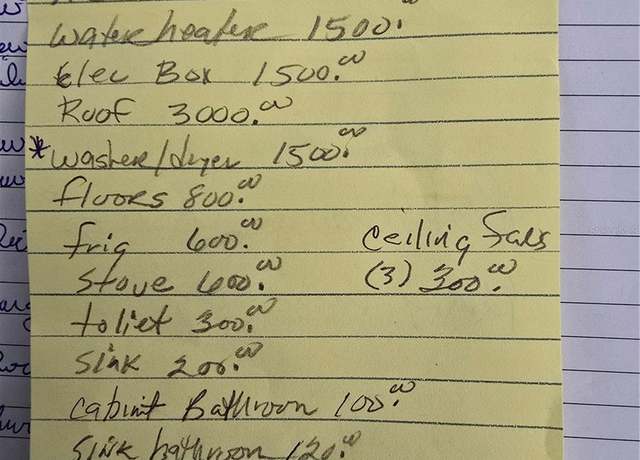 Water heater 1500.
Elec Box 1500.00
Roof 3000.00
*washer/dryer 1500.00
floors 800.00
frig 600.00
Stove 600.00
toliet 300.00
Sink 200.00
Cabint Bathroon 100.00
Sink bathroon 120.00
Ceiling fans
(3) 300.00